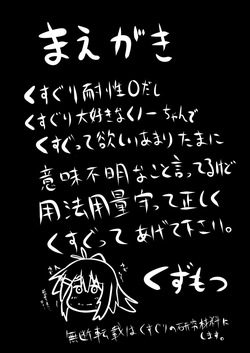 まえがき
くすぐり耐性0だし
くすぐり大好きなくノーちゃんで
くすぐって欲しいあまりたまに
意味不明なこと言ってるけど
用法用量守って正しく
くすぐってあげて下さい。
くずもつ
無断転載はくすぐりの研究材料に
します。